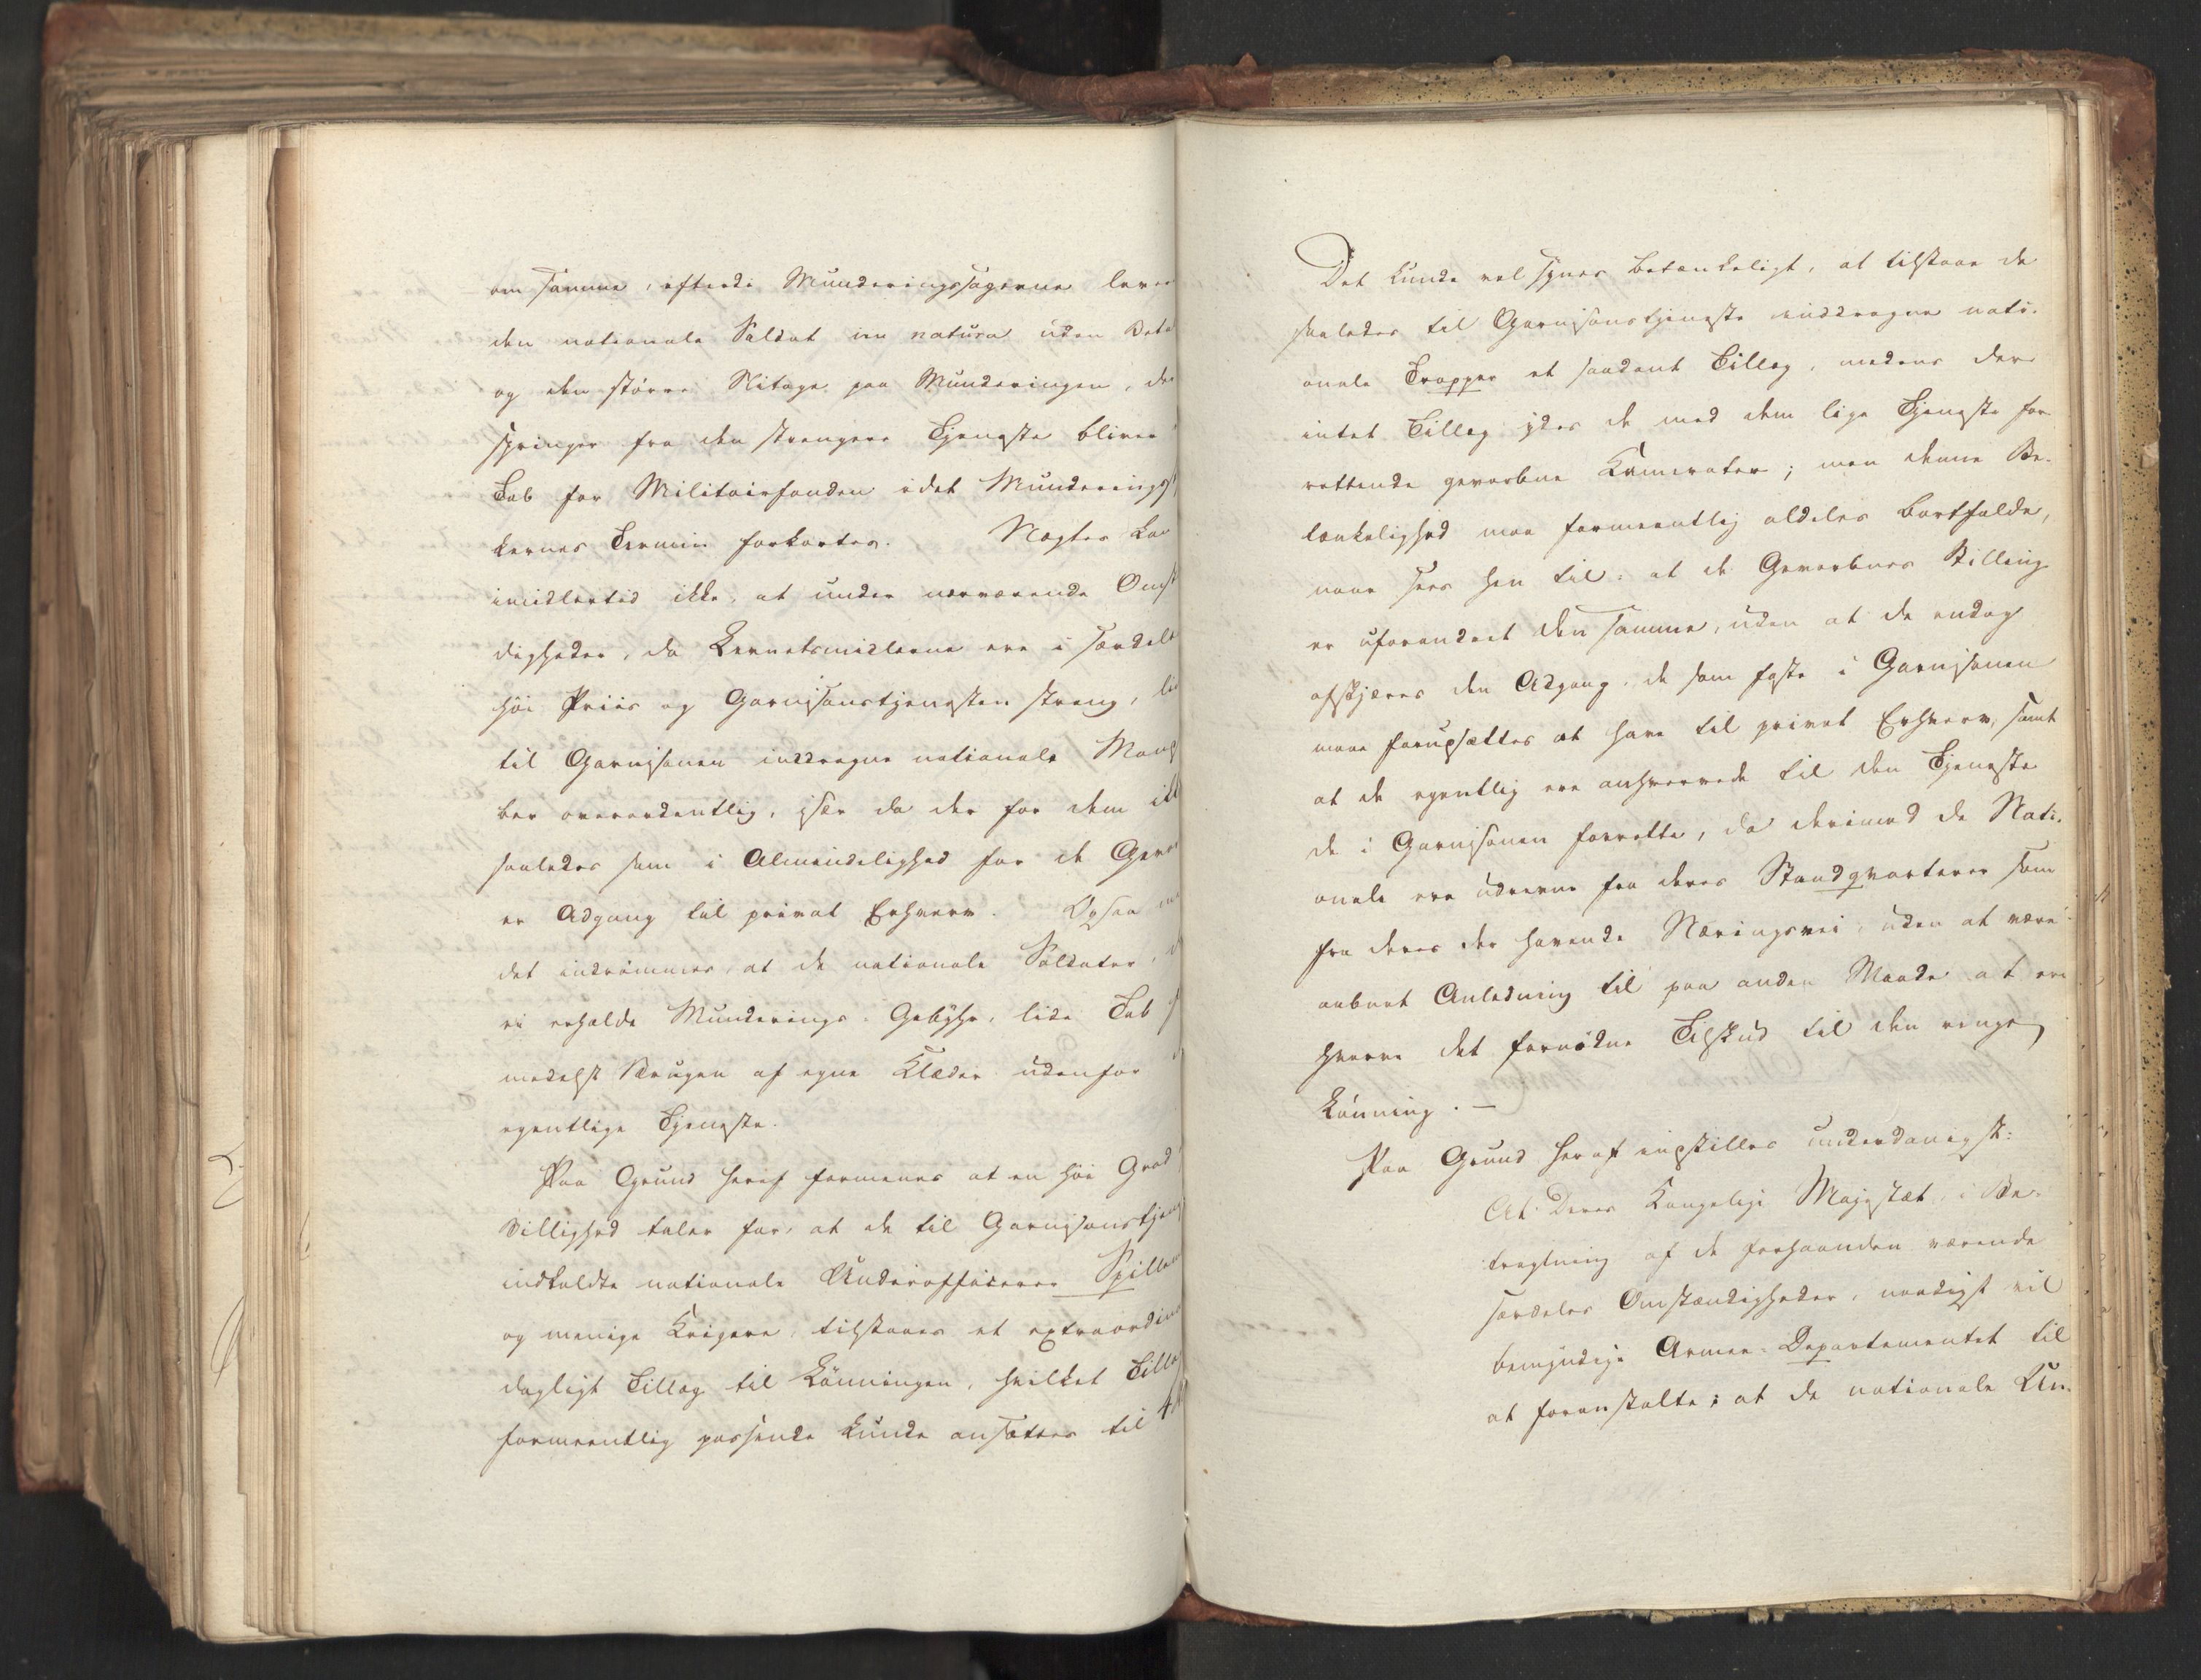 om samme, efterdi Munderingssagerne lever
den nationale Soldat in natura uden Beta
og den større Slitage paa Munderingen, der
springer fra den strengere Tjeneste bliver
Tab for Militairfonden idet Munderingsst
kernes Termin forkortes. Negtes kan
imidlertid ikke, at under nærværende Omst
digheder, da Levnetsmidlerne ere i særdele
høi Priis og Garnisonstjenesten streng, li
til Garnisonen inddragne nationale Mang
ber overordentlig, især da der for dem ikk
saaledes som i Almindelighed for de Gevor
er Adgang til privat Erhverv. Ogsaa m
det indrømmes, at de nationale Soldater,
ei erholde Munderings-Gebyhr, lide Tab
medelst Brugen af egne Klæder udenfor
egentlige Tjeneste.
Paa Grund heraf formenes at en høi Grad
Billighed taler for, at de til Garnisonstjen
indkaldte nationale Underofficerer Spillem
og menige Krigere, tilstaaes et extraordin
dagligt Tillæg til Lønningen, hvilket Tillæ
formeentlig passende kunde ansættes til 4
Det kunde vel synes betænkeligt, at tilstaae de
saaledes til Garnisonstjeneste inddragne nati-
onale Tropper et saadant Tillæg, medens der
intet Tillæg ydes de med dem lige Tjeneste for
rettende gevorbne Kamerater; men denne Be-
tænkelighed maa formeentlig aldeles bortfalde,
naar sees hen til: at de Gevorbnes Stilling
er uforandret den samme, uden at de endog
afskjæres den Adgang, de som faste i Garnisonen
maae forudsættes at have til privat Erhverv, samt
at de egentlig ere anhvervede til den Tjeneste
de i Garnisonen forrette, da derimod de Nati-
onale ere udrevne fra deres Standqvarterer som
fra deres der havende Næringsvei, uden at være
aabnet Anledning til paa anden Maade at er-
hverve det fornødne Tilskud til den ringe
Lønning. —
Paa Grund heraf indstilles underdanigst:
At Deres Kongelige Majestæt, i Be-
tragtning af de forhaanden værende
særdeles Omstændigheder, naadigst vil
bemyndige Armee-Departementet til
at foranstalte; at de nationale Un-